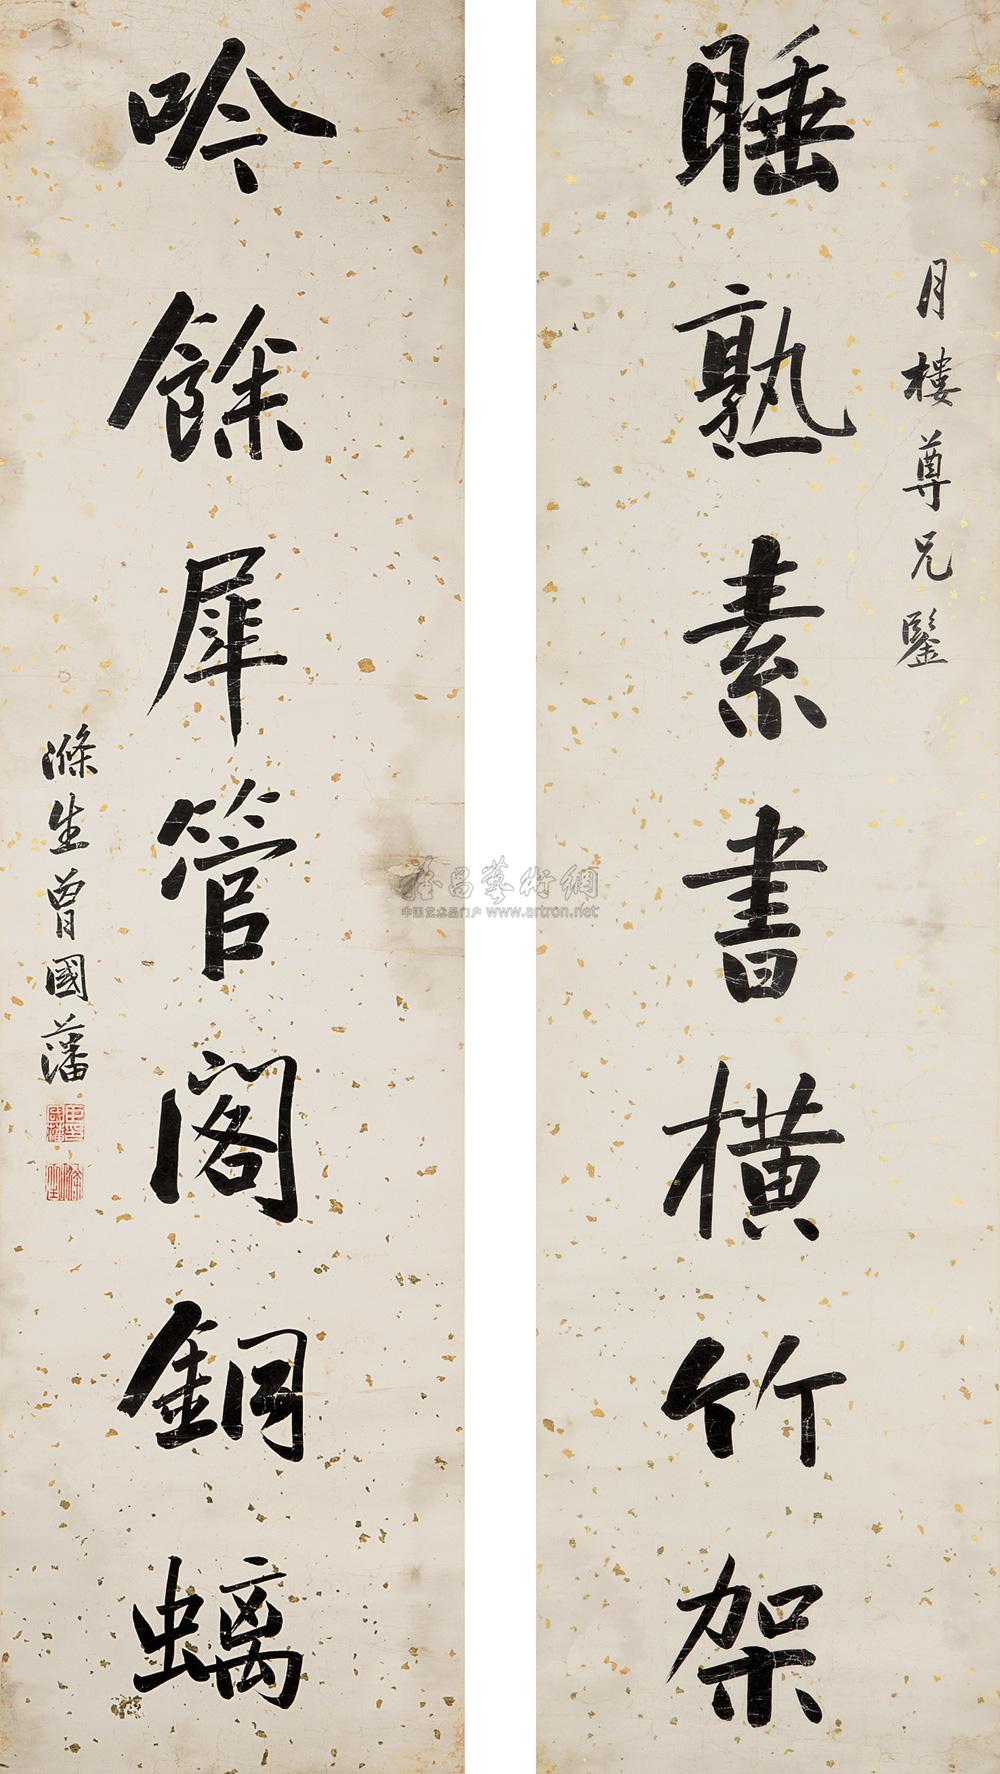 月樓尊兄鑒
睡熟素書橫竹架
吟餘犀管閣銅螭
滌生曾國藩
雅昌藝術網
中国艺术品门户 www.artron.net